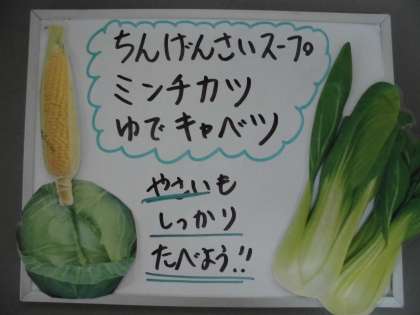 ちんげんさいスープ
ミンチカツ
ゆでキャベツ
やさいも
しっかり
たべよう!!